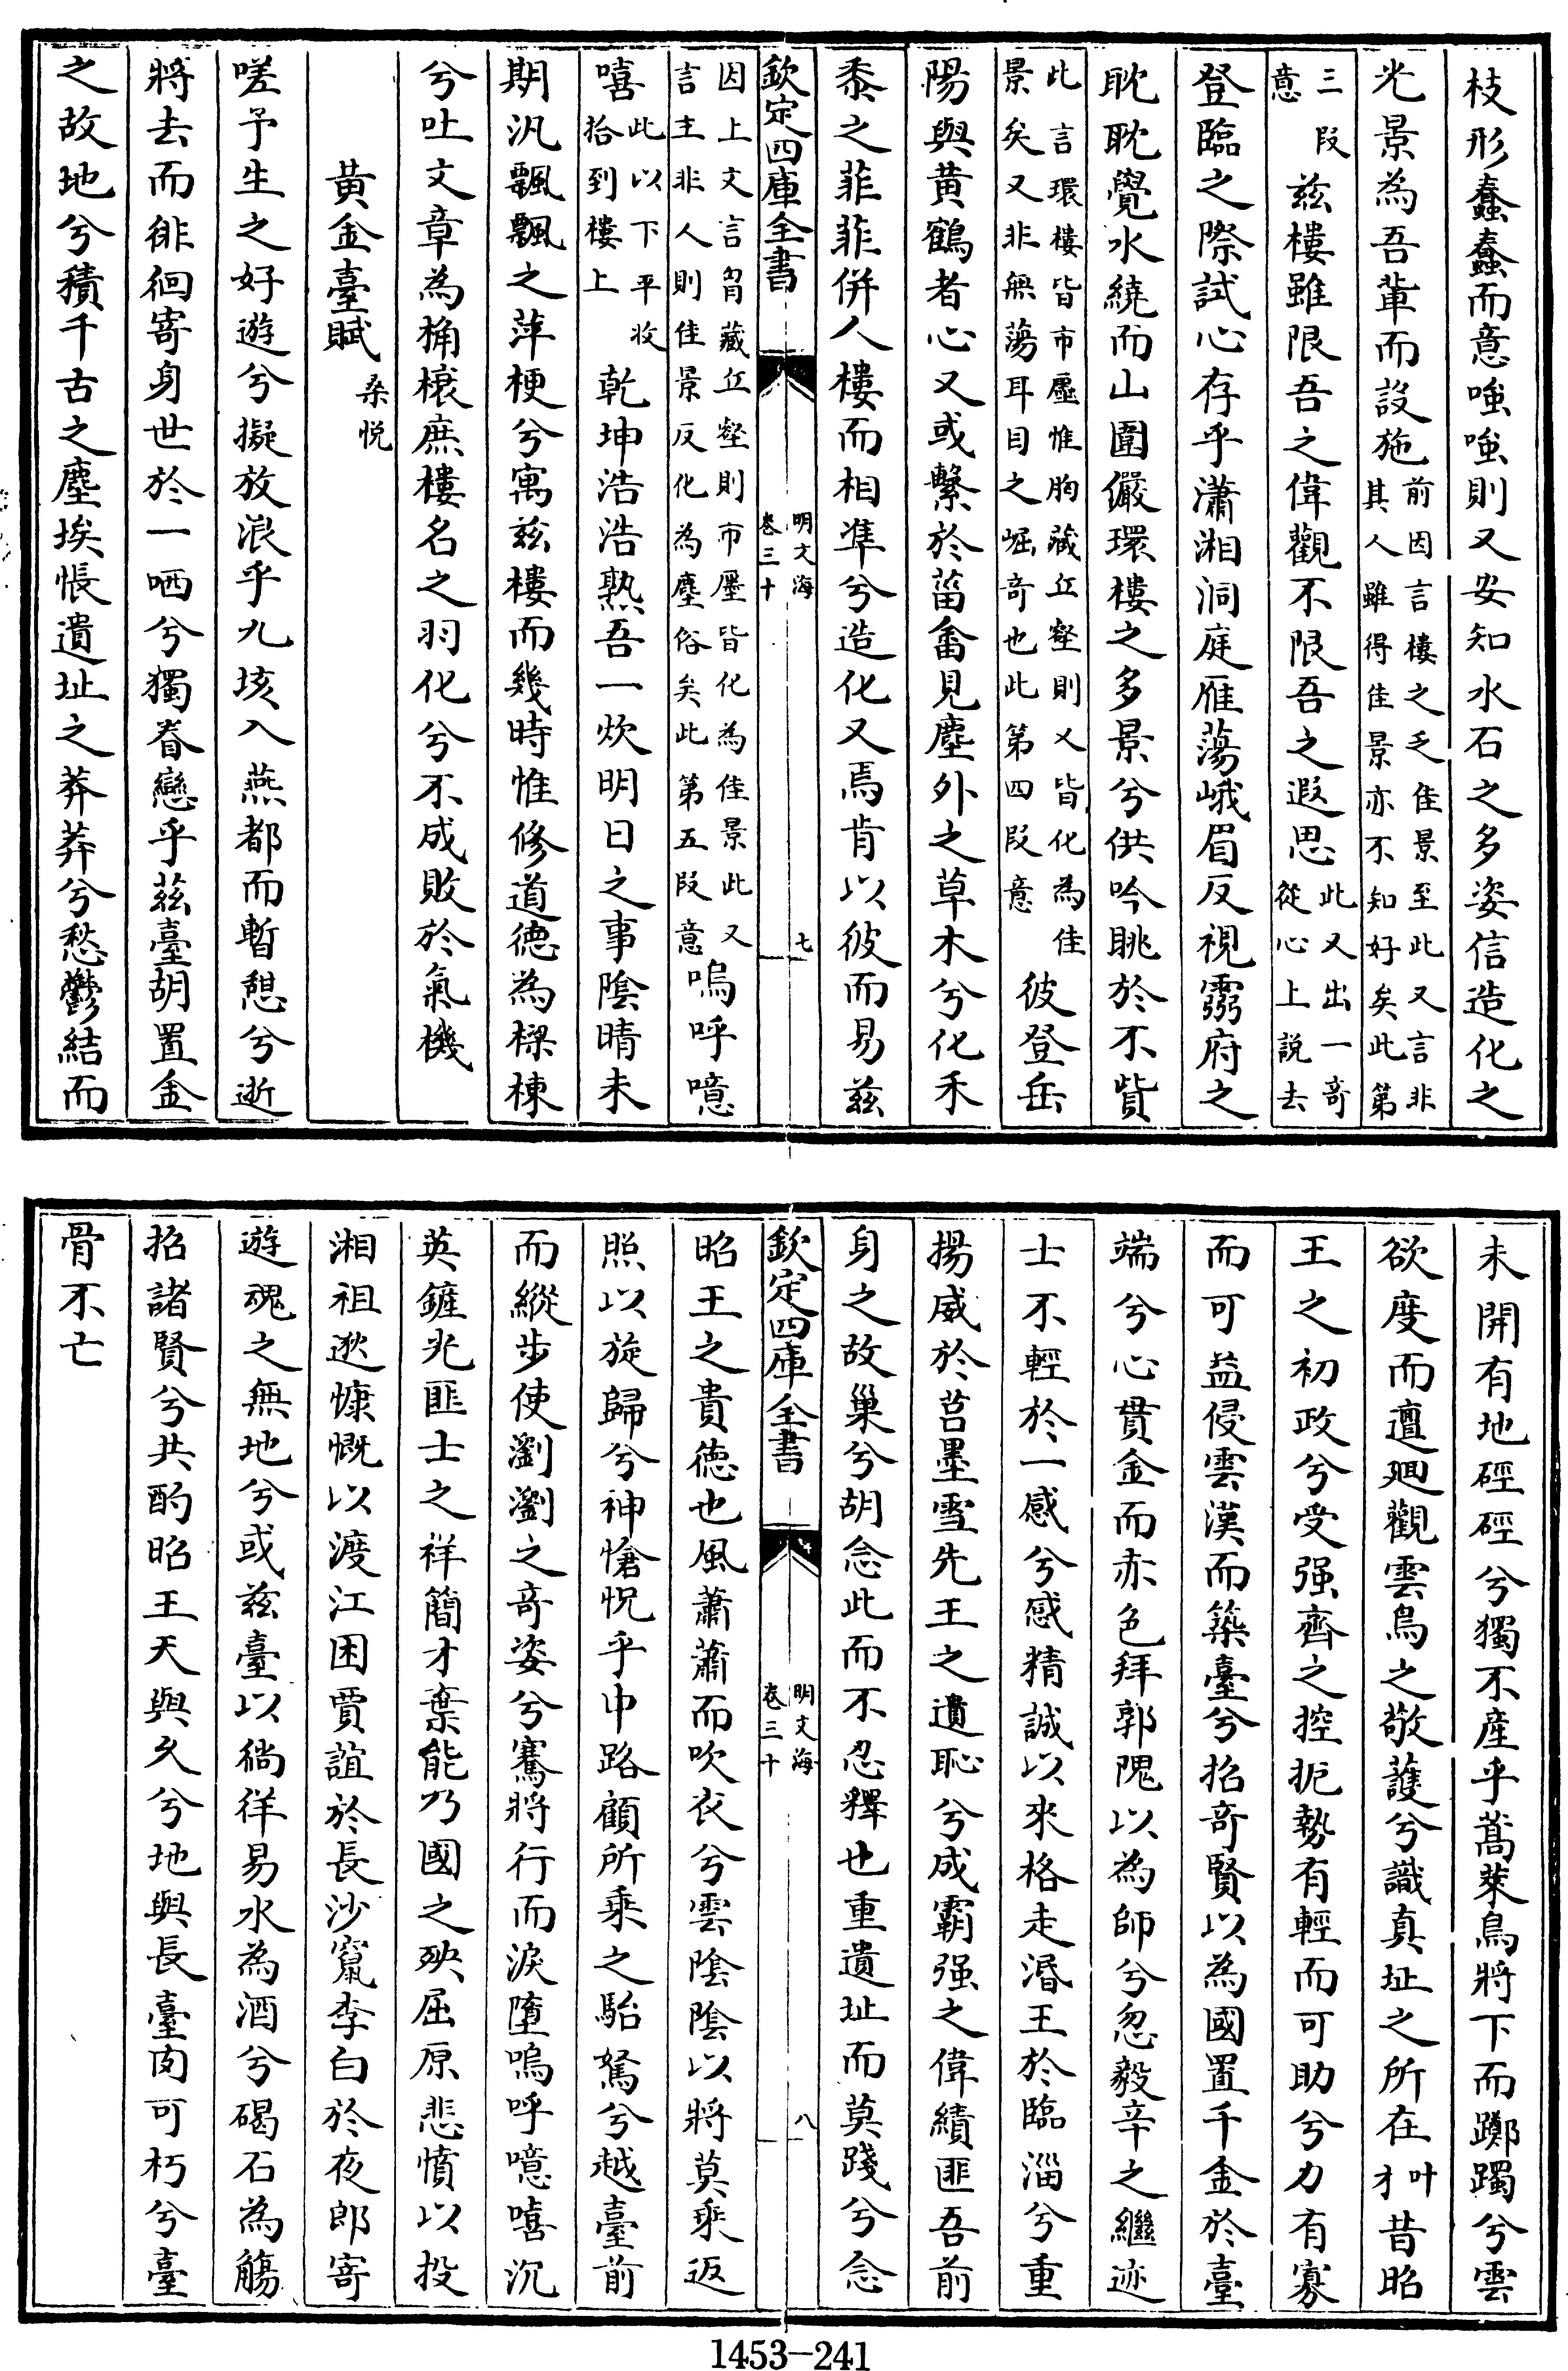 枝形蠢蠢而意嗤嗤則又安知水石之多姿信造化之
光景為吾輩而設施前因言樓之乏佳景至此又言非其人雖得佳景亦不知好矣此第
三段意兹樓雖限吾之偉觀不限吾之遐思此又出一奇從心上說去
登臨之際試心存乎瀟湘洞庭雁蕩峨眉反視霛府之
耽耽覺水繞而山圍儼環樓之多景兮供吟眺於不貲
此言環樓皆市廛惟胸藏丘壑則又皆化為佳景矣又非無蕩耳目之崛奇也此第四段意彼登岳
陽與黃鶴者心又或繫於菑畬見塵外之草木兮化禾
黍之菲菲併人樓而相準兮造化又焉肯以彼而易兹
欽定四庫全書
明文海
卷三十
七
因上文言胷藏丘壑則市廛皆化為佳景此又言主非人則佳景反化為塵俗矣此第五段意嗚呼噫
嘻此以下平收拾到樓上乾坤浩浩熟吾一炊明日之事陰晴未
期汎飄飄之萍梗兮寓兹樓而幾時惟修道德為樑棟
兮吐文章為桷榱庶樓名之羽化兮不成敗於氣機
黃金臺賦 桑悅
嗟予生之好遊兮擬放浪乎九垓入燕都而暫憩兮逝
將去而徘徊寄身世於一哂兮獨眷戀乎茲臺胡置金
之故地兮積千古之塵埃悵遺址之莽莽兮愁鬱結而
未開有地硜硜兮獨不產乎蒿萊鳥將下而躑躅兮雲
欲度而邅廻觀雲鳥之敬護兮識真址之所在叶才昔昭
王之初政兮受强齊之控扼勢有輕而可助兮力有寡
而可益侵雲漢而築臺兮招奇賢以為國置千金於臺
端兮心貫金而赤色拜郭隗以為師兮忽毅辛之繼迹
士不輕於一感兮感精誠以來格走湣王於臨淄兮重
揚威於莒墨雪先王之遺恥兮成霸强之偉績匪吾前
身之故巢兮胡念此而不忍釋也重遺址而莫踐兮念
欽定四庫全書
明文海
卷三十
八
昭王之貴德也風蕭蕭而吹衣兮雲陰陰以將莫乘返
照以旋歸兮神愴怳乎中路顧所乘之駘駑兮越臺前
而縱步使瀏瀏之奇姿兮騫將行而淚墮嗚呼噫嘻沉
英鏟光匪士之祥簡才棄能乃國之殃屈原悲憤以投
湘祖逖慷慨以渡江困賈誼於長沙竄李白於夜郎寄
遊魂之無地兮或兹臺以徜徉易水為酒兮碣石為觴
招諸賢兮共酌昭王天與久兮地與長臺肉可朽兮臺
骨不亡
1453-241